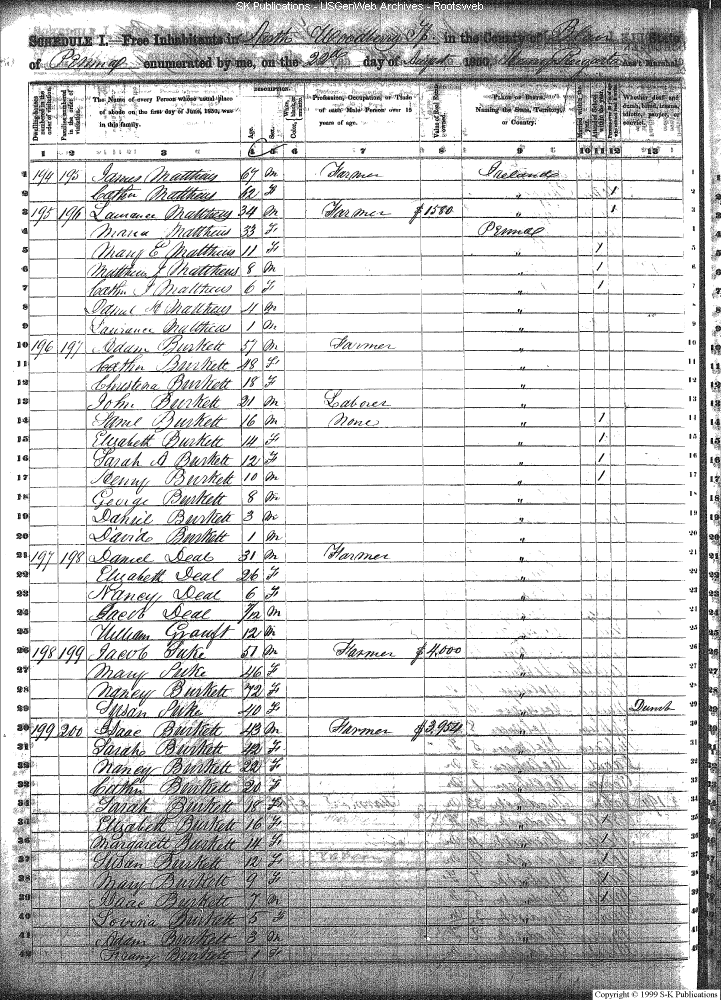 SK Publications - USGenWeb Archives - Rootsweb
SCHEDULE I. Free Inhabitants in North Woodberry Tp in the County of Blair State
of Pennna enumerated by me, on the day of August 1850. Ass't Marshal.
DESCRIPTION.
Dwelling-houses numbered in the order of visitation.
Families numbered in the order of visitation.
The Name of every Person whose usual place of abode on the first day of June, 1850, was in this family.
Age.
Sex.
White, black, or mulatto.
Profession, Occupation, or Trade of each Male Person over 15 years of age.
Value of Real Estate owned.
PLACE OF BIRTH. Naming the State, Territory, or Country.
Married within the year.
Attended School within the year.
Whether deaf and dumb, blind, insane, idiotic, pauper, or convict.
1 2 3 4 5 6 7 8 9 10 11 12 13
1 194 195 James Matthews 67 M Farmer Ireland 1
2 Cathn Matthews 62 F " 1 2
3 195 196 Laurance Matthews 34 M Farmer $1580 " 1 3
4 Maria Matthews 33 F Pennna 4
5 Mary E Matthews 11 F " 1 5
6 Matthew J Matthews 8 M " 1 6
7 Cathn A Matthews 6 F " 1 7
8 Daniel M Matthews 4 M " 8
9 Laurance Matthews 1 M " 9
10 196 197 Adam Burkett 57 M Farmer " 10
11 Cathn Burkett 48 F " 11
12 Christena Burkett 18 F " 12
13 John Burkett 21 M Laborer " 13
14 Saml Burkett 16 M None " 1 14
15 Elizabeth Burkett 14 F " 1 15
16 Sarah A Burkett 12 F " 1 16
17 Henry Burkett 10 M " 1 17
18 George Burkett 8 M " 18
19 Daniel Burkett 3 M " 19
20 David Burkett 1 M " 20
21 197 198 Daniel Deal 31 M Farmer " 21
22 Elizabeth Deal 26 F " 22
23 Nancy Deal 6 F " 23
24 Jacob Deal /12 M " 24
25 William 12 M " 25
26 198 199 Jacob 51 M Farmer $4,000 " 26
27 Mary 46 F " 27
28 Nancy Burkett 72 F " 28
29 Susan 40 F " Dumb 29
30 199 200 Isaac Burkett 43 M Farmer $3,954 " 30
31 Sarah Burkett 42 F " 31
32 Nancy Burkett 22 F " 32
33 Cathn Burkett 20 F " 33
34 Sarah Burkett 18 F " 34
35 Elizabeth Burkett 16 F " 1 35
36 Margarett Burkett 14 F " 1 36
37 Susan Burkett 12 F " 1 37
38 Mary Burkett 9 F " 1 38
39 Isaac Burkett 7 M " 1 39
40 Lovina Burkett 5 F " 40
41 Adam Burkett 3 M " 41
42 Burkett 1 F " 42
Copyright © 1999 S-K Publications